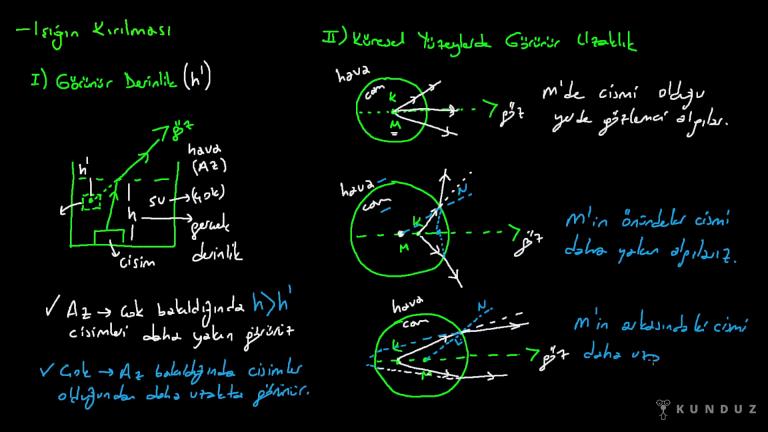 -Işığın Kırılması
I) Görünür Derinlik (h')
göz
h'
hava
(AZ)
su → (çok)
h
gerçek
derinlik
cisim
✓ Az → Çok bakıldığında h>h'
cisimleri daha yakın görürüz
✓ Çok → Az bakıldığında cisimler
olduğundan daha uzakta görünür.
II) Küresel Yüzeylerde Görünür Uzaklık
hava
cam
K
M
göz
M'de cismi olduğu
yerde gözlemci algılar.
hava
cam
N
K
M
göz
M'in önündeler cismi
daha yakın algılarız.
hava
cam
N
K
M
göz
M'in arkasındaki cismi
daha uz
KUNDUZ